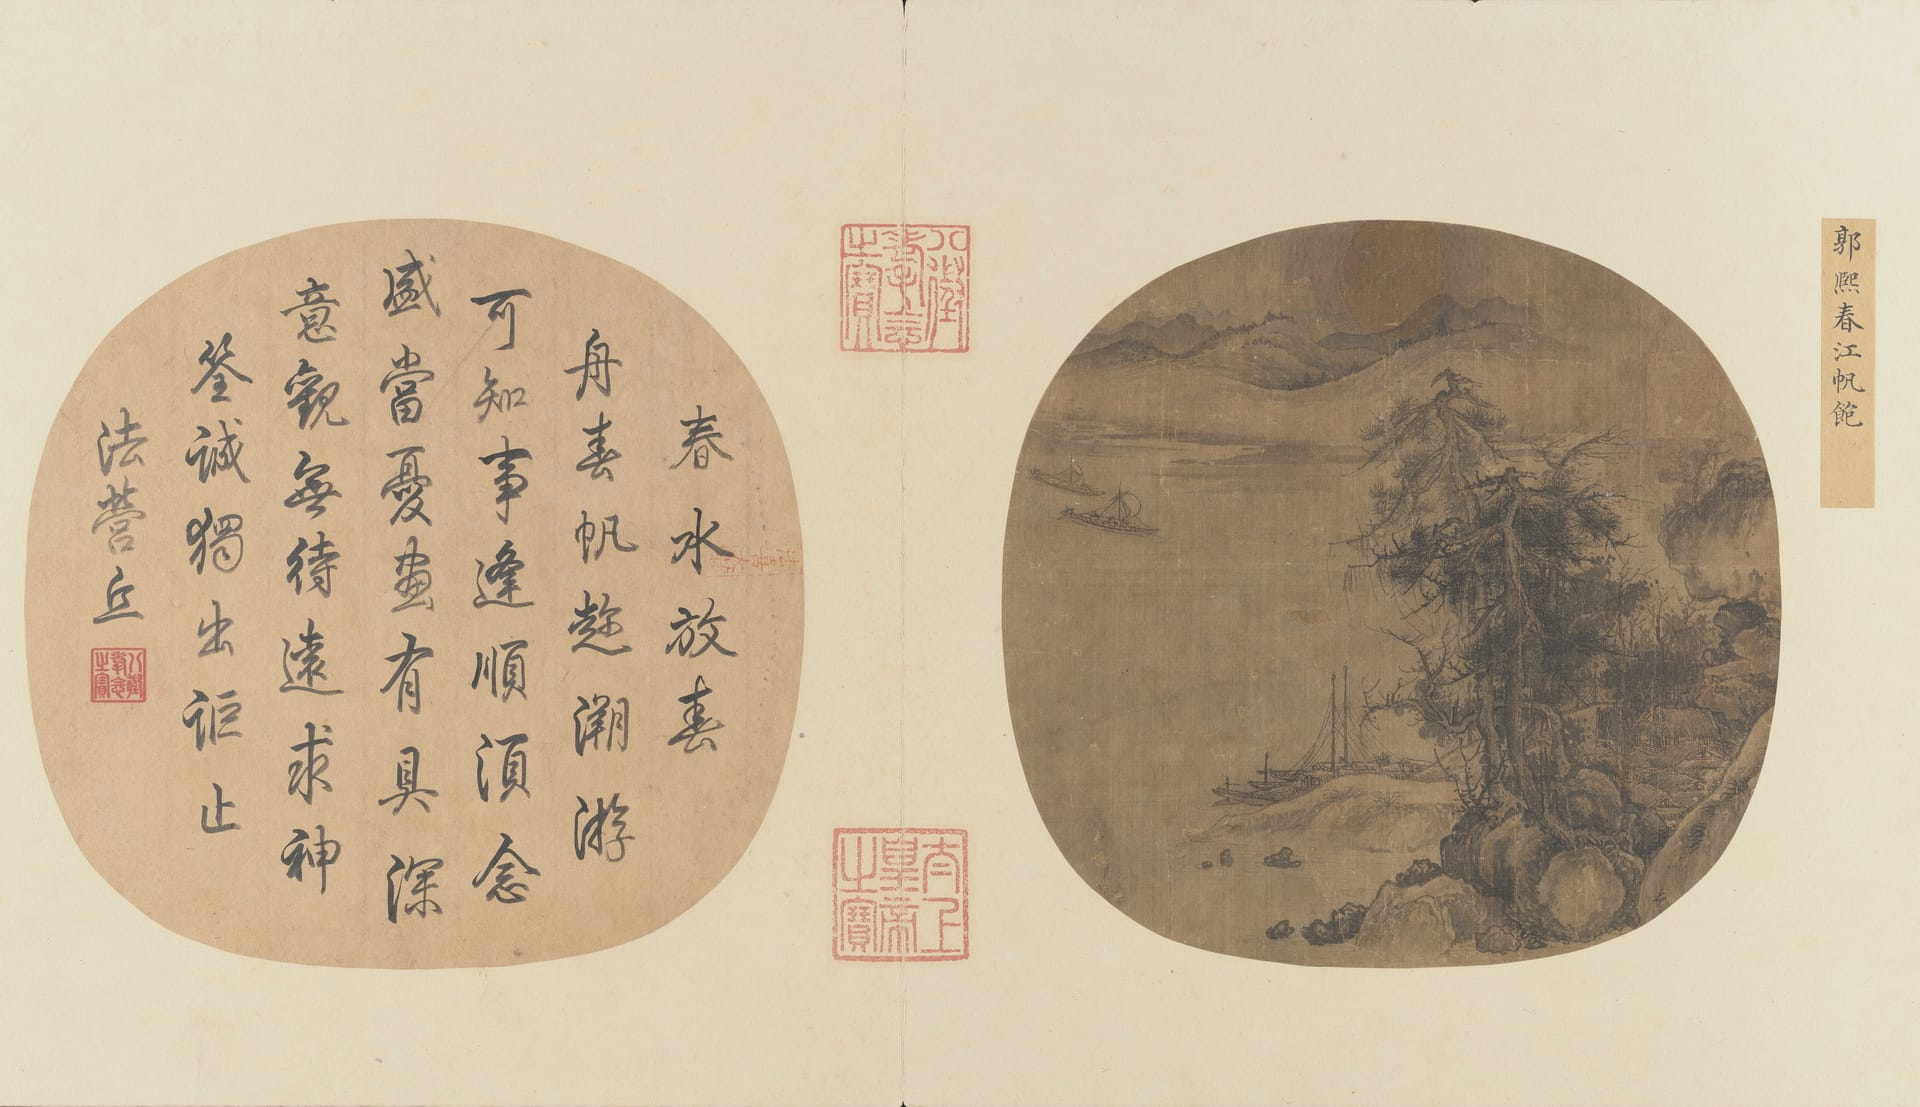 郭熙春江帆飽
春水放春
舟春帆趂溯游
可知事逢順須念
盛當憂畫有具深
意觀無待遠求神
筌誠獨出詎止
法營丘
八徵耄念之寶
八徵耄念之寶
太上皇帝之寶